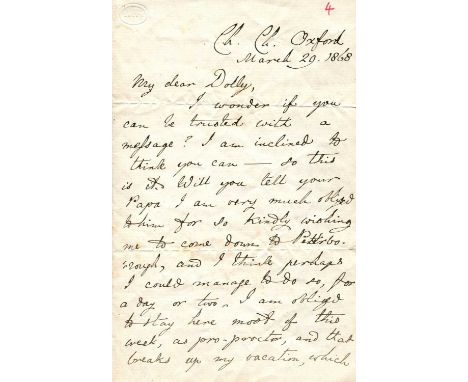 4
Ch. Ch. Oxford
March 29. 1868
My dear Dolly,
I wonder if you
can be trusted with a
message? I am inclined to
think you can — so this
is it. Will you tell your
Papa I am very much obliged
to him for so kindly wishing
me to come down to Peterbo-
rough, and I think perhaps
I could manage to do so, for
a day or two. I am obliged
to stay here most of this
week, as pro-proctor, and that
breaks up my vacation, which